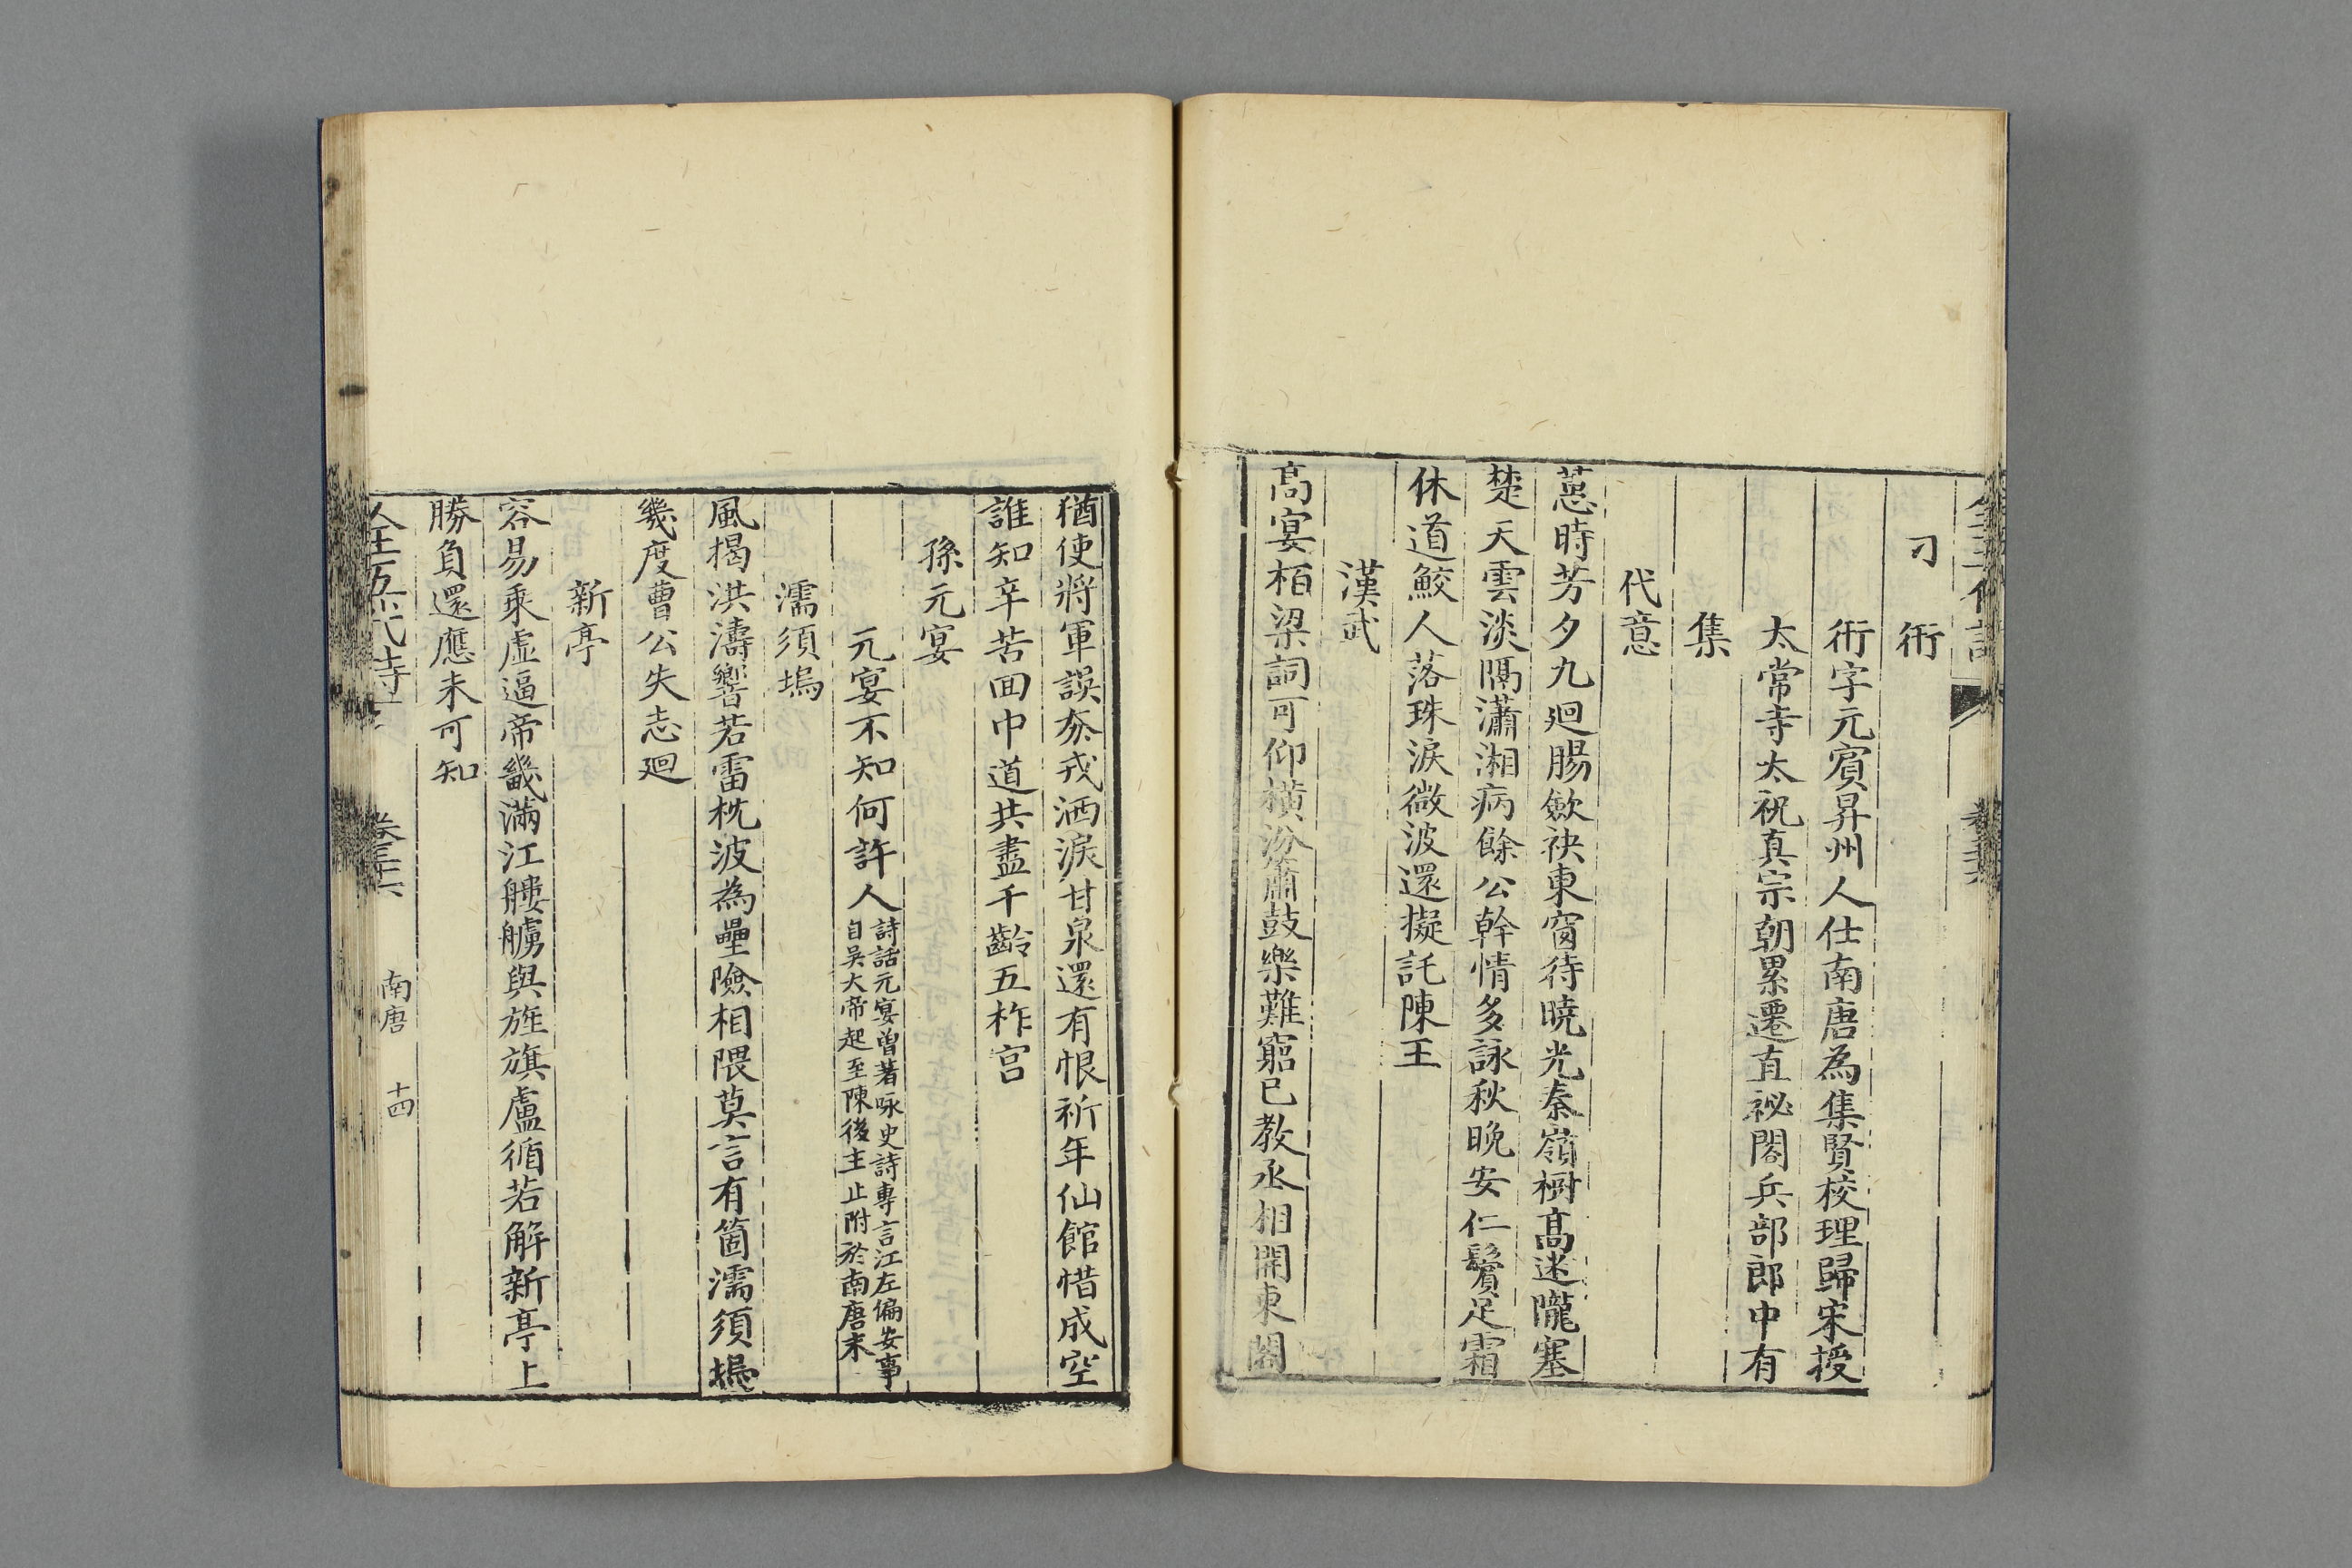 刁術
術字元賓昇州人仕南唐為集賢校理歸宋授
太常寺太祝真宗朝累遷直祕閣兵部郎中有
集
代意
蕙時芳夕九廻腸歛袂東窗待曉光秦嶺樹高迷隴塞
楚天雲淡隔瀟湘病餘公幹情多詠秋晚安仁鬢足霜
休道鮫人落珠淚微波還擬託陳王
漢武
高宴栢梁詞可仰橫汾簫鼓樂難窮已教丞相開東閣
猶使將軍誤叅戎洒淚甘泉還有恨祈年仙館惜成空
誰知辛苦回中道共盡千齡五柞宫
孫元宴
元宴不知何許人詩話元宴曽著咏史詩專言江左偏安事
自吳大帝起至陳後主止附於南唐末
濡須塢
風揭洪濤響若雷枕波為壘險相隈莫言有箇濡須塢
幾度曹公失志廻
新亭
容易乘虛逼帝畿滿江艛艣與旌旗盧循若解新亭上
勝負還應未可知
全五代詩
南唐
十四